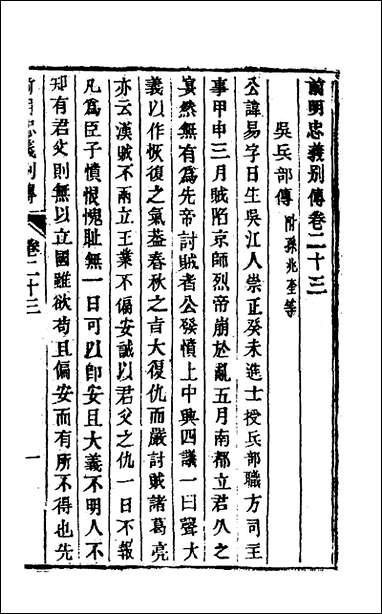 前明忠義别傳卷二十三
吳兵部傳 附孫兆奎等
公諱易字日生吳江人崇正癸未進士授兵部職方司主
事甲申三月賊陷京師烈帝崩於亂五月南都立君久之
寂然無有為先帝討賊者公發憤上中興四議一曰聲大
義以作恢復之氣蓋春秋之吉大復仇而嚴討賊諸葛亮
亦云漢賊不兩立王業不偏安誠以君父之仇一日不報
凡為臣子憤恨愧耻無一日可以卽安且大義不明人不
知有君父則無以立國雖欲苟且偏安而有所不得也先
前明忠義别傳 卷二十三 一